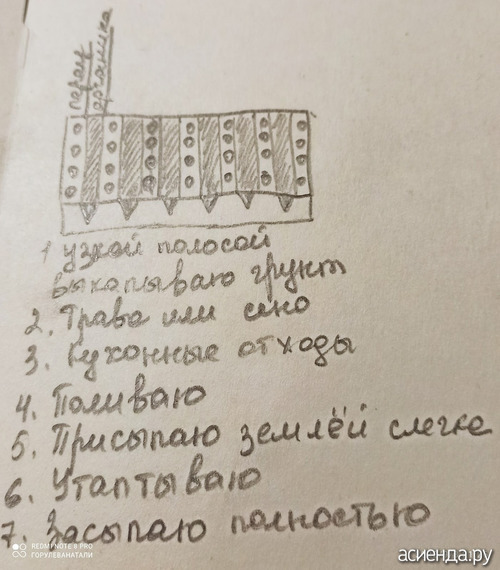 перец
органика
1 узкой полосой
выкапываю грунт
2. Трава или сено
3. Кухонные отходы
4. Поливаю
5. Присыпаю землёй слегка
6. Утаптываю
7. Засыпаю полностью
REDMI NOTE 8 PRO
ГОРУЛЕВАНАТАЛИ
асиенда.ру